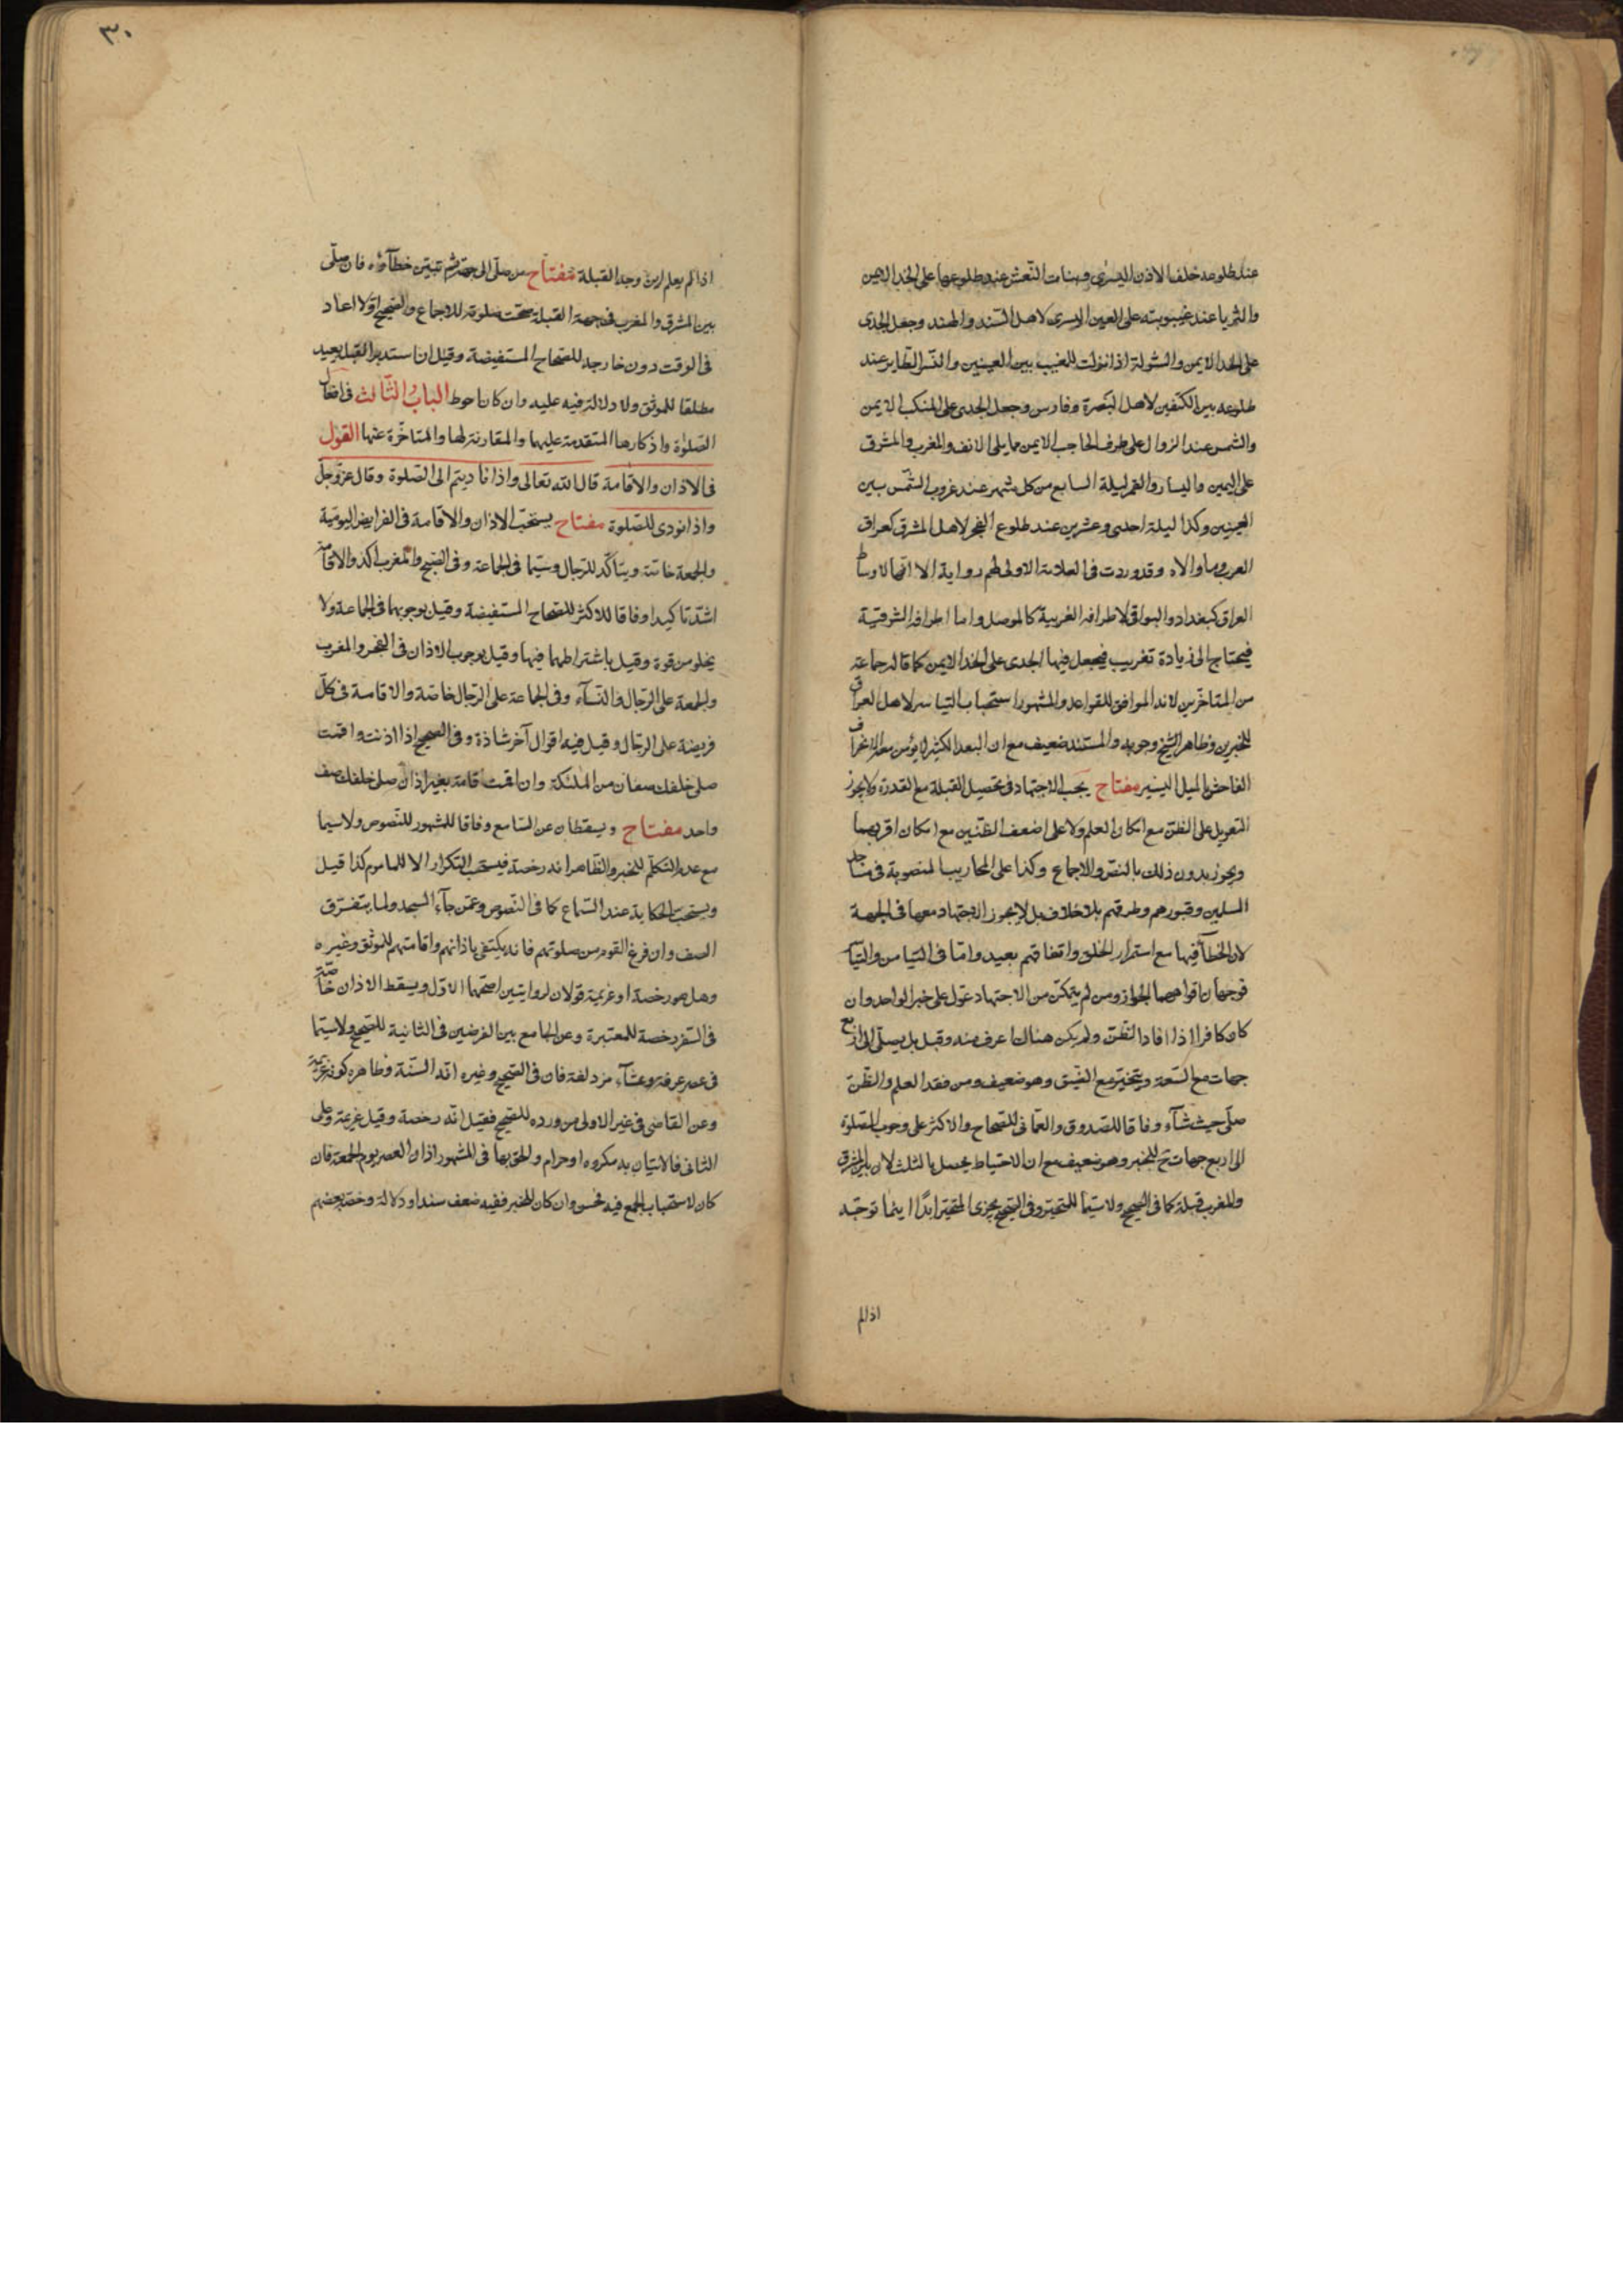 عند طلوعه خلف الاذن اليسرى وبنات النعش عند طلوعها على الخد الايمن
والثريا عند غيبوبته على العين اليسرى لاهل السند والهند وجعل الجدى
على الخد الايمن والشولة اذا نزلت للمغيب بين العينين والنسر الطاير عند
طلوعه بين الكتفين لاهل البصرة وفارس وجعل الجدى على المنكب الايمن
والشمس عند الزوال على طرف الحاجب الايمن مما يلى الانف والمغرب والمشرق
على اليمين واليسار والقمر ليلة السابع من كل شهر عند غروب الشمس بين
العينين وكذا ليلة احدى وعشرين عند طلوع الفجر لاهل المشرق كعراق
العرب وما والاه وقد وردت فى العلامة الاولى لهم رواية الا انها لاوساط
العراق كبغداد والبواقى لاطرافه الغربية كالموصل واما اطرافه الشرقية
فيحتاج الى زيادة تغريب فيجعل فيها الجدى على الخد الايمن كما قاله جماعة
من المتاخرين لانه الموافق للقواعد والمشهور استحباب التياسر لاهل العراق
للخبرين وظاهر الشيخ وجوبه والمستند ضعيف مع ان البعد الكثير لا يؤمن معه الانحراف
الفاحش بالميل اليسير مفتاح يجب الاجتهاد فى تحصيل القبلة مع القدرة ولا يجوز
التعويل على الظن مع امكان العلم ولا على اضعف الظنين مع امكان اقربهما
ويجوز بدون ذلك بالنص والاجماع وكذا على المحاريب المنصوبة فى مساجد
المسلمين وقبورهم وطرقهم بلا خلاف بل لا يجوز الاجتهاد معها فى الجهة
لان الخطأ فيها مع استمرار الخلق واتفاقهم بعيد واما فى التيامن والتياسر
فوجهان اقواهما الجواز ومن لم يتمكن من الاجتهاد عول على خبر الواحد وان
كان كافرا اذا افاد الظن ولم يكن هناك اعرف منه وقيل بل يصلى الى اربع
جهات مع السعة ويتخير مع الضيق وهو ضعيف ومن فقد العلم والظن
صلى حيث شآء وفاقا للصدوق والعمانى للصحاح والاكثر على وجوب الصلوة
الى اربع جهات ح للخبر وهو ضعيف مع ان الاحتياط يحصل بالثلث لان بين المشرق
والمغرب قبلة كما فى الصحيح ولاسيما للمتحير وفى الصحيح يجزى المتحير ابدًا اينما توجه
اذا لم
٣٠
اذا لم يعلم اين وجه القبلة مفتاح من صلى الى جهة ثم تبين خطآؤه فان صلى
بين المشرق والمغرب فى جهة القبلة صحت صلوته للاجماع والصحيح اولا اعاد
فى الوقت دون خارجه للصحاح المستفيضة وقيل ان استدبر القبلة يعيد
مطلقا للموثق ولا دلالة فيه عليه وان كان احوط الباب الثالث فى افعال
الصلوة واذكارها المتقدمة عليها والمقارنة لها والمتاخرة عنها القول
فى الاذان والاقامة قال الله تعالى واذا ناديتم الى الصلوة وقال عز وجل
واذا نودى للصلوة مفتاح يستحب الاذان والاقامة فى الفرايض اليومية
والجمعة خاصة ويتأكد للرجال وسيما فى الجماعة وفى الصبح والمغرب اكد والاقامة
اشد تاكيدا وفاقا للاكثر للصحاح المستفيضة وقيل بوجوبهما فى الجماعة ولا
يخلو من قوة وقيل باشتراطهما فيها وقيل بوجوب الاذان فى الفجر والمغرب
والجمعة على الرجال والنسآء وفى الجماعة على الرجال خاصة والاقامة فى كل
فريضة على الرجال وقيل فيه اقوال آخر شاذة وفى الصحيح اذا اذنت واقمت
صلى خلفك صفان من الملئكة وان اقمت اقامة بغير اذان صلى خلفك صف
واحد مفتاح ويسقطان عن السامع وفاقا للمشهور للنصوص ولاسيما
مع عدم التكلم للخبر والظاهر انه رخصة فيستحب التكرار الا للماموم كذا قيل
ويستحب الحكاية عند السماع كما فى النصوص وعمن جآء المسجد ولما يتفرق
الصف وان فرغ القوم من صلوتهم فانه يكتفى باذانهم واقامتهم للموثق وغيره
وهل هو رخصة او عزيمة قولان لروايتين اصحهما الاول ويسقط الاذان خاصة
فى السفر رخصة للمعتبرة وعن الجامع بين الفرضين فى الثانية للصحيح ولاسيما
فى عصر عرفة وعشآء مزدلفة فان فى الصحيح وغيره انه السنة وظاهره كونه عزيمة
وعن القاضى فى غير الاولى من ورده للصحيح فقيل انه رخصة وقيل عزيمة وعلى
الثانى فالاتيان به مكروه او حرام والحق بها فى المشهور اذان العصر يوم الجمعة فان
كان لاستحباب الجمع فيه فحسن وان كان للخبر ففيه ضعف سندا ودلالة وخصه بعضهم